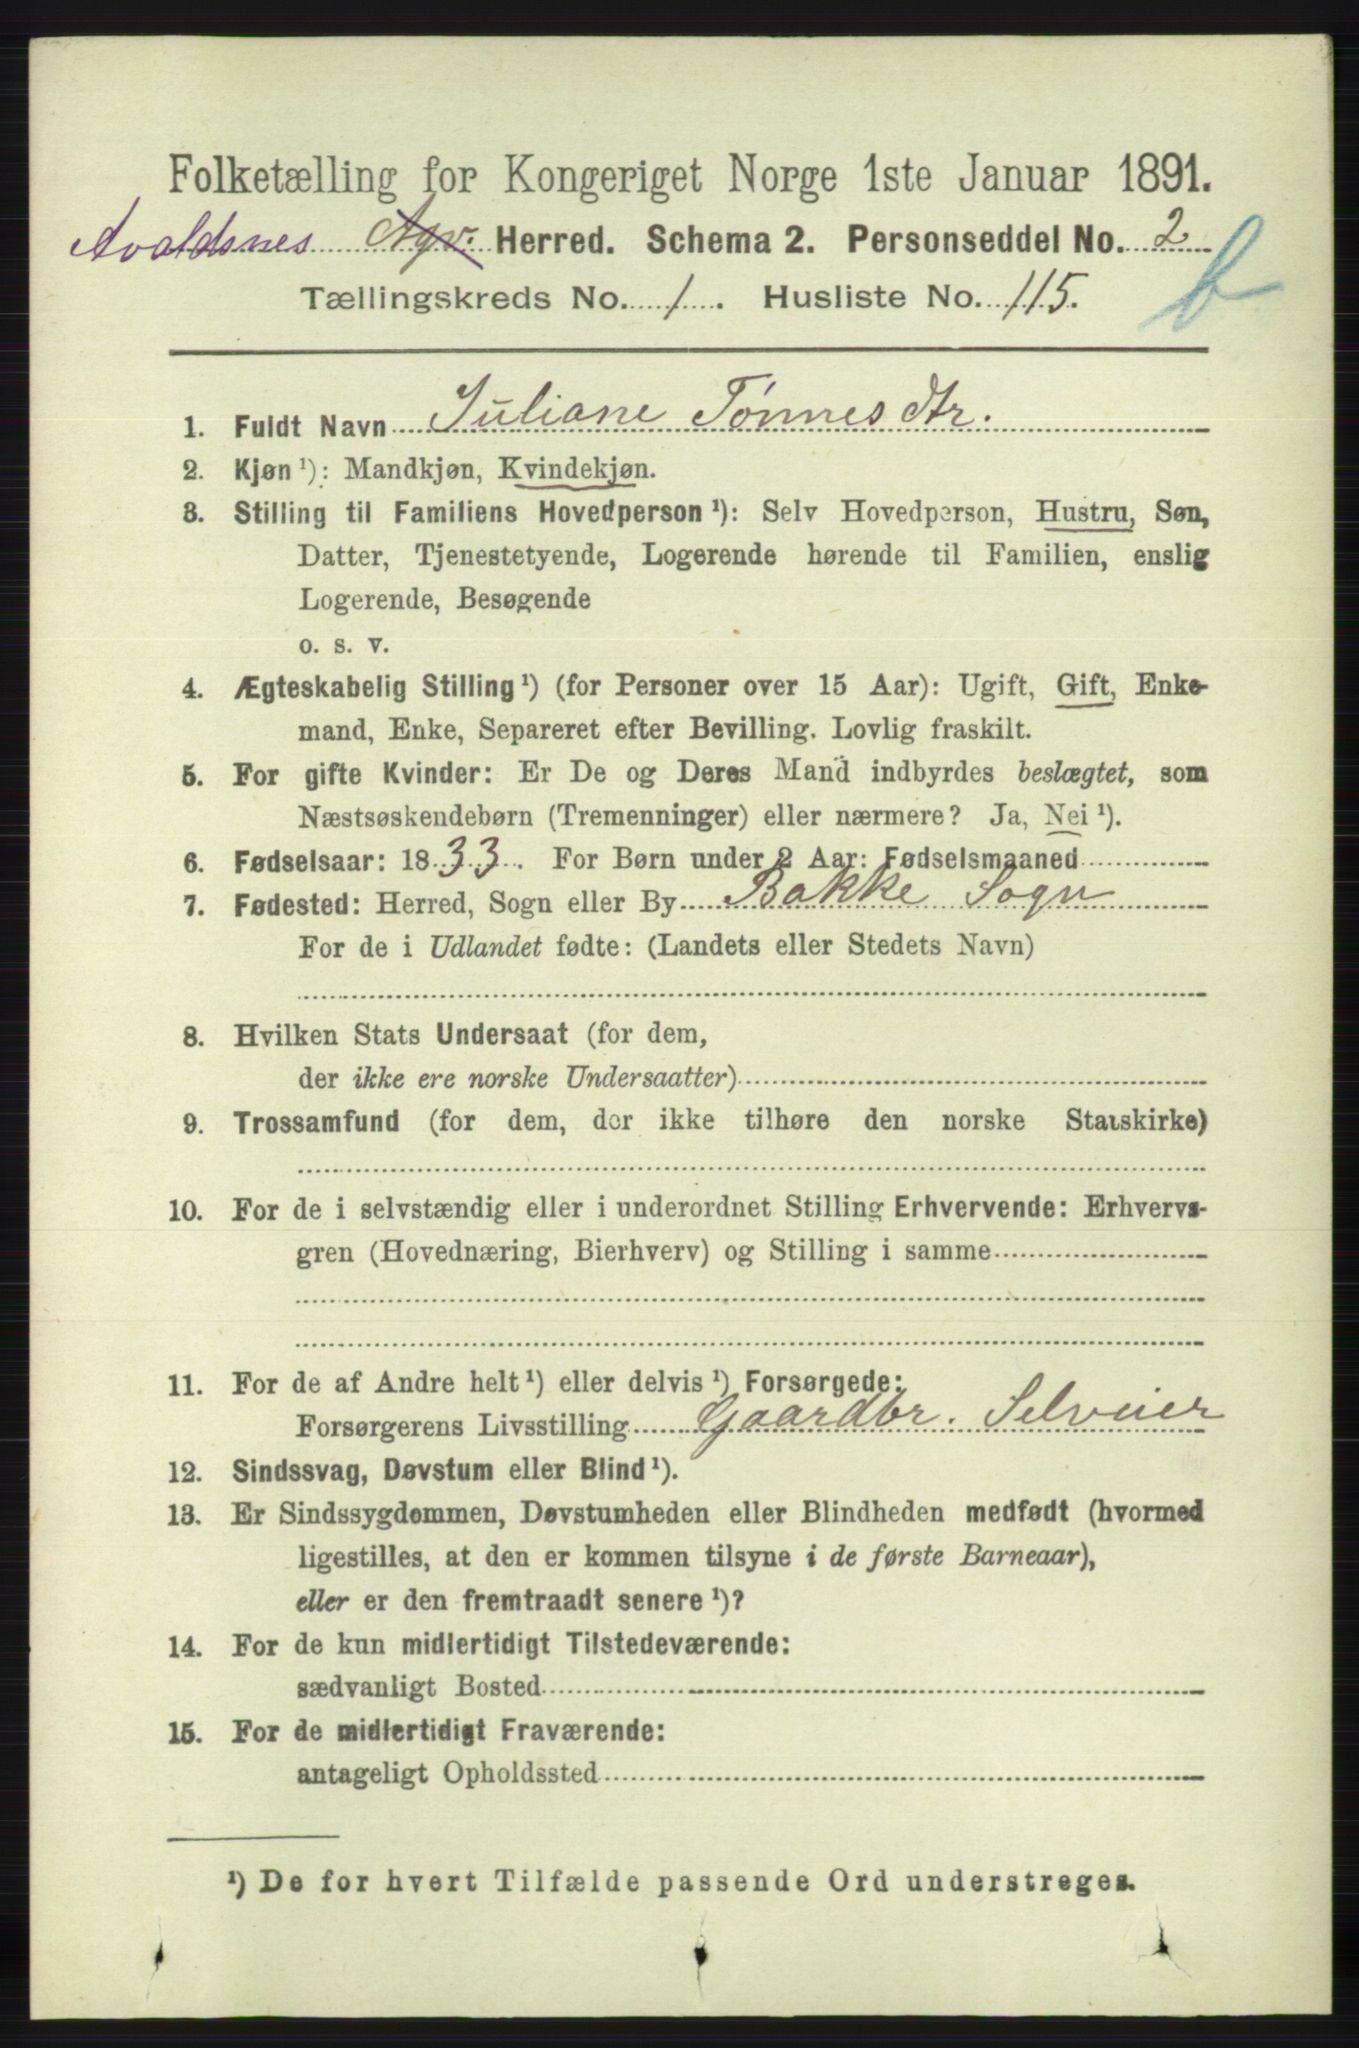 Folketælling for Kongeriget Norge 1ste Januar 1891.
Avaldsnes Agv. Herred. Schema 2. Personseddel No. 2
Tællingskreds No. 1. Husliste No. 115.
b
1. Fuldt Navn Juliane Tønnesdtr.
2. Kjøn ¹): Mandkjøn, Kvindekjøn.
3. Stilling til Familiens Hovedperson ¹): Selv Hovedperson, Hustru, Søn,
Datter, Tjenestetyende, Logerende hørende til Familien, enslig
Logerende, Besøgende
o. s. v.
4. Ægteskabelig Stilling ¹) (for Personer over 15 Aar): Ugift, Gift, Enke-
mand, Enke, Separeret efter Bevilling. Lovlig fraskilt.
5. For gifte Kvinder: Er De og Deres Mand indbyrdes beslægtet, som
Næstsøskendebørn (Tremenninger) eller nærmere? Ja, Nei ¹).
6. Fødselsaar: 1833. For Børn under 2 Aar: Fødselsmaaned
7. Fødested: Herred, Sogn eller By Bakke Sogn
For de i Udlandet fødte: (Landets eller Stedets Navn)
8. Hvilken Stats Undersaat (for dem,
der ikke ere norske Undersaatter)
9. Trossamfund (for dem, der ikke tilhøre den norske Statskirke)
10. For de i selvstændig eller i underordnet Stilling Erhvervende: Erhvervs-
gren (Hovednæring, Bierhverv) og Stilling i samme
11. For de af Andre helt ¹) eller delvis ¹) Forsørgede:
Forsørgerens Livsstilling Gaardbr. Selveier
12. Sindssvag, Døvstum eller Blind ¹).
13. Er Sindssygdommen, Døvstumheden eller Blindheden medfødt (hvormed
ligestilles, at den er kommen tilsyne i de første Barneaar),
eller er den fremtraadt senere ¹)?
14. For de kun midlertidigt Tilstedeværende:
sædvanligt Bosted
15. For de midlertidigt Fraværende:
antageligt Opholdssted
¹) De for hvert Tilfælde passende Ord understreges.